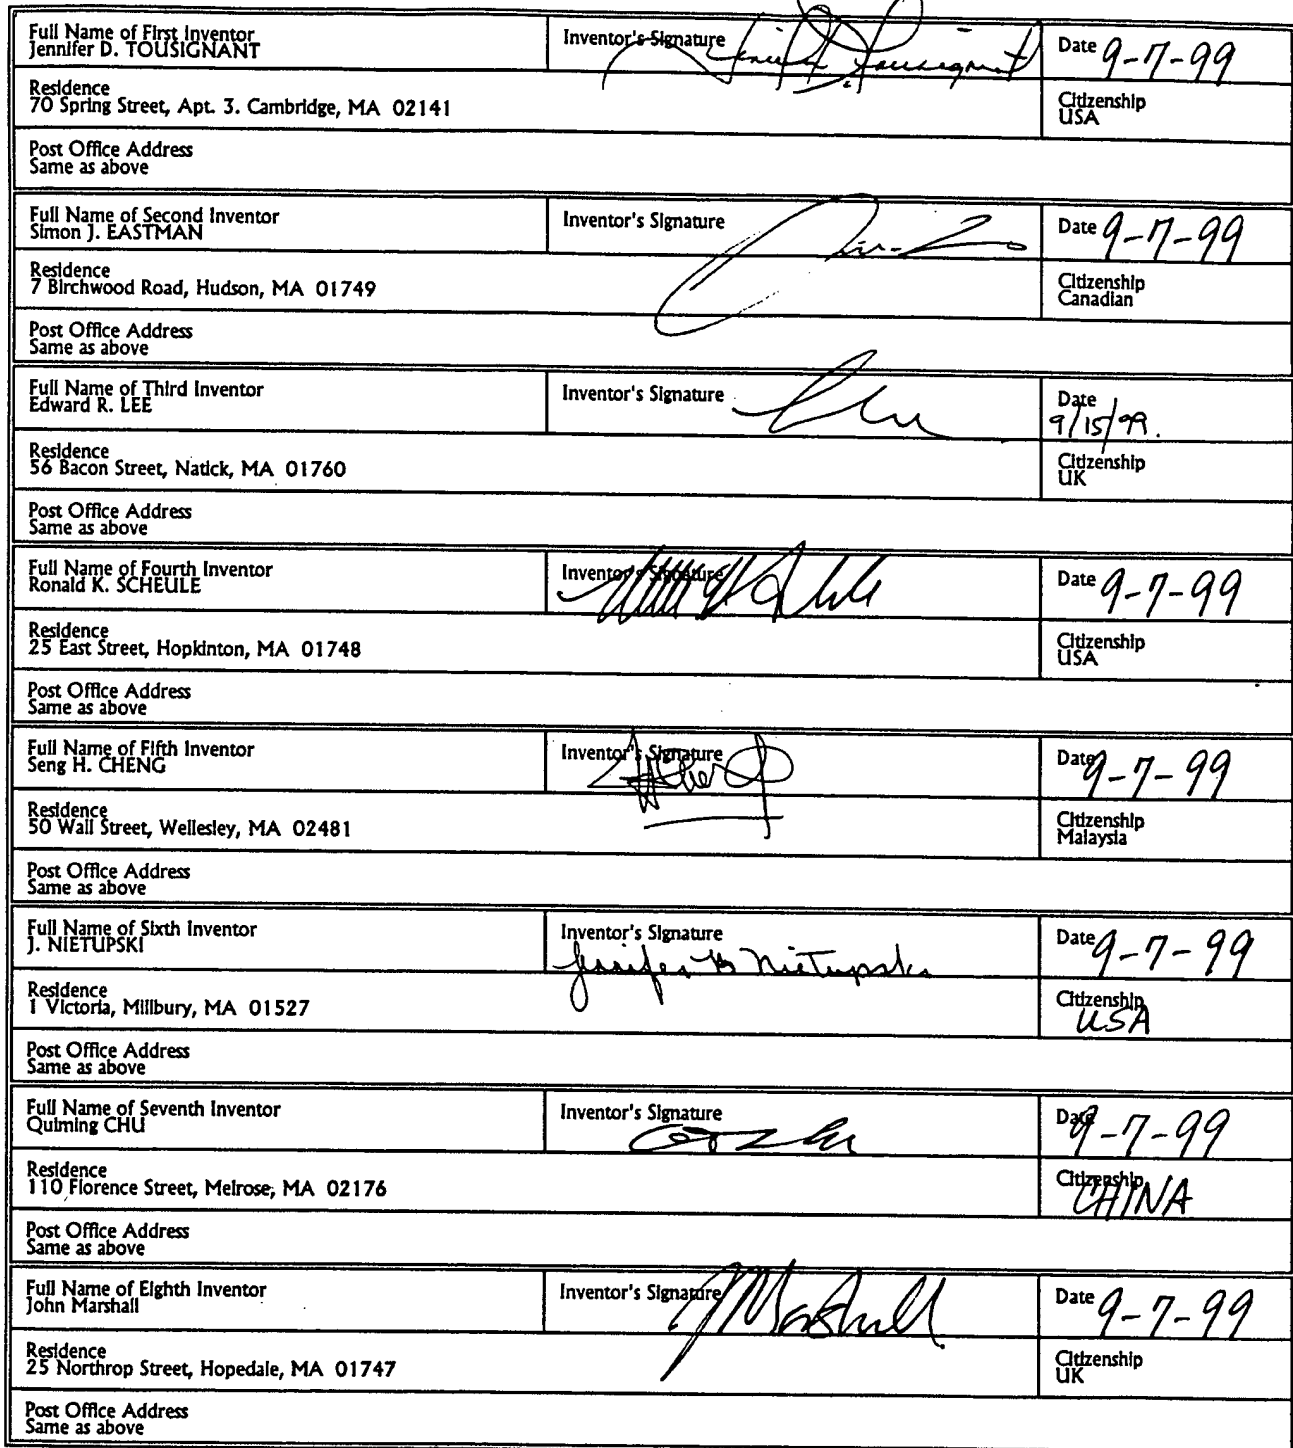 Full Name of First Inventor
Jennifer D. TOUSIGNANT
Inventor's Signature
Date 9-7-99
Residence
70 Spring Street, Apt. 3. Cambridge, MA 02141
Citizenship
USA
Post Office Address
Same as above
Full Name of Second Inventor
Simon J. EASTMAN
Inventor's Signature
Date 9-7-99
Residence
7 Birchwood Road, Hudson, MA 01749
Citizenship
Canadian
Post Office Address
Same as above
Full Name of Third Inventor
Edward R. LEE
Inventor's Signature
Date
9/15/99.
Residence
56 Bacon Street, Natick, MA 01760
Citizenship
UK
Post Office Address
Same as above
Full Name of Fourth Inventor
Ronald K. SCHEULE
Inventor's Signature
Date 9-7-99
Residence
25 East Street, Hopkinton, MA 01748
Citizenship
USA
Post Office Address
Same as above
Full Name of Fifth Inventor
Seng H. CHENG
Inventor's Signature
Date 9-7-99
Residence
50 Wall Street, Wellesley, MA 02481
Citizenship
Malaysia
Post Office Address
Same as above
Full Name of Sixth Inventor
J. NIETUPSKI
Inventor's Signature
Jennifer B Nietupski
Date 9-7-99
Residence
1 Victoria, Millbury, MA 01527
Citizenship
USA
Post Office Address
Same as above
Full Name of Seventh Inventor
Quiming CHU
Inventor's Signature
Date 9-7-99
Residence
110 Florence Street, Melrose, MA 02176
Citizenship
CHINA
Post Office Address
Same as above
Full Name of Eighth Inventor
John Marshall
Inventor's Signature
JMarshall
Date 9-7-99
Residence
25 Northrop Street, Hopedale, MA 01747
Citizenship
UK
Post Office Address
Same as above